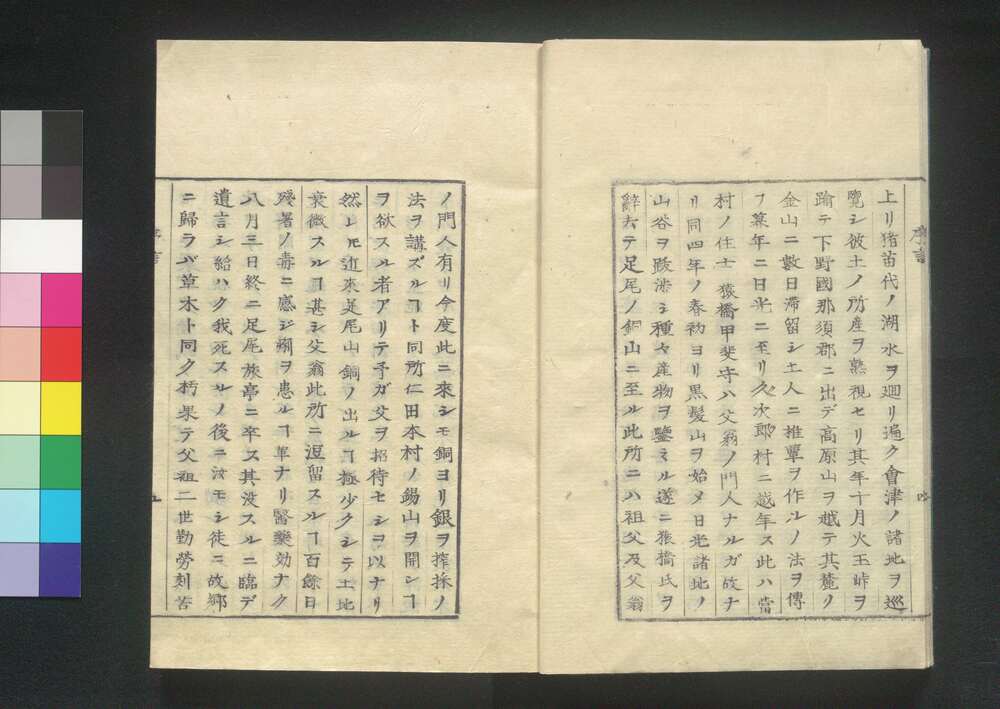 上リ猪苗代ノ湖水ヲ廻リ遍ク會津ノ諸地ヲ巡
覽シ彼土ノ所產ヲ熟視セリ其年十月火玉峠ヲ
踰テ下野國那須郡ニ出デ高原山ヲ越テ其麓ノ
金山ニ數日滯留シ土人ニ推輩ヲ作ルノ法ヲ傳
フ冪年ニ日光ニ至リ久次郞村ニ越年ス此ハ當
村ノ住士猿橋甲斐守ハ父翁ノ門人ナルガ故ナ
リ同四年ノ春初ヨリ黒髪山ヲ始メ日光諸地ノ
山谷ヲ跋渉シ種々產物ヲ鑒ミル遂ニ猿橋氏ヲ
辭去テ足尾ノ銅山ニ至ル此所ニハ祖父及父翁
序言
四
ノ門人有リ今度此ニ來シモ銅ヨリ銀ヲ搾採ノ
法ヲ講ズルヿト同所仁田本村ノ錫山ヲ開シヿ
ヲ欲スル者アリテ予ガ父ヲ招待セシヲ以ナリ
然レ𪜈近來足尾山銅ノ出ルヿ極少クシテ土地
衰微スルヿ甚シ父翁此所ニ逗留スルヿ百餘日
殘暑ノ毒ニ感ジ痢ヲ患ルヿ革ナリ醫藥効ナク
八月三日終ニ足尾旅亭ニ卒ス其沒スルニ臨デ
遺言シ給ハク我死スルノ後ニ汝モシ徒ニ故鄕
ニ歸ラバ草木ト同ク朽果テ父祖二世勤勞刻苦
序言
五